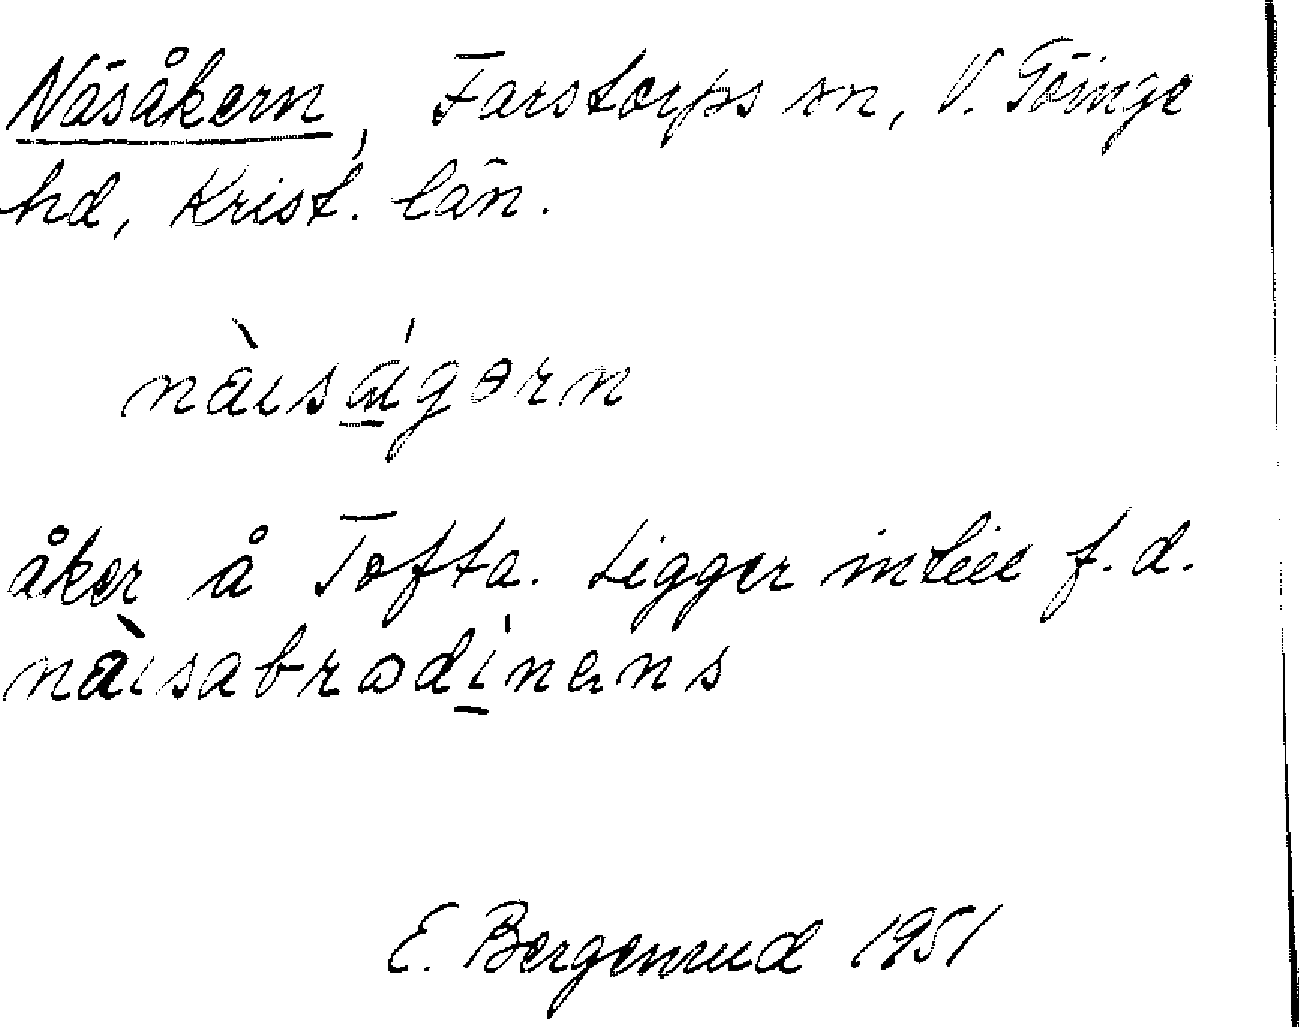 Näsåkern, Farstorps sn, V. Göinge
hd, Krist. län.
nàısáıgərn
åker å Tofta. Ligger intill f.d.
nàısabradínɐns
E. Bergenrud 1951